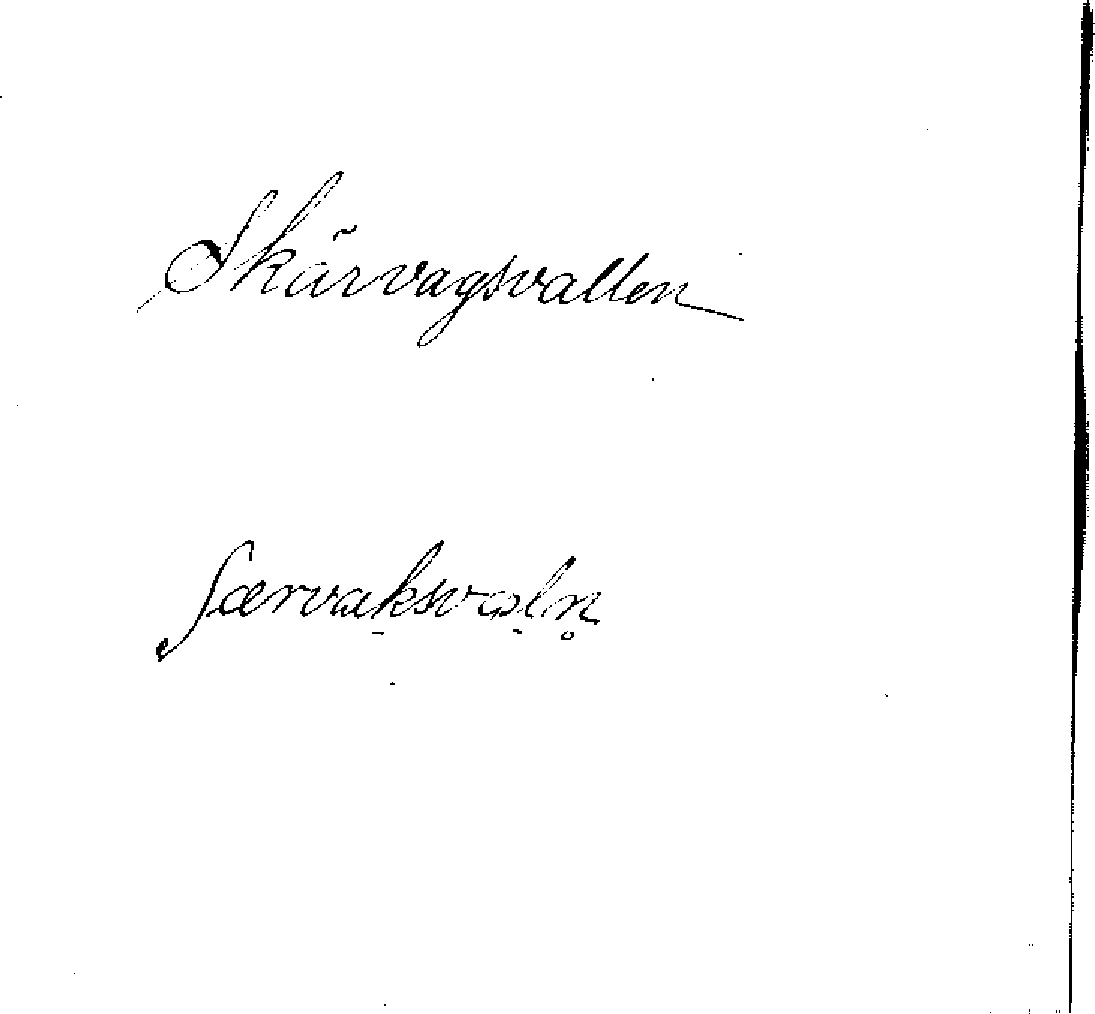 Skärvagsvallen
ʃærvaksvaln̥